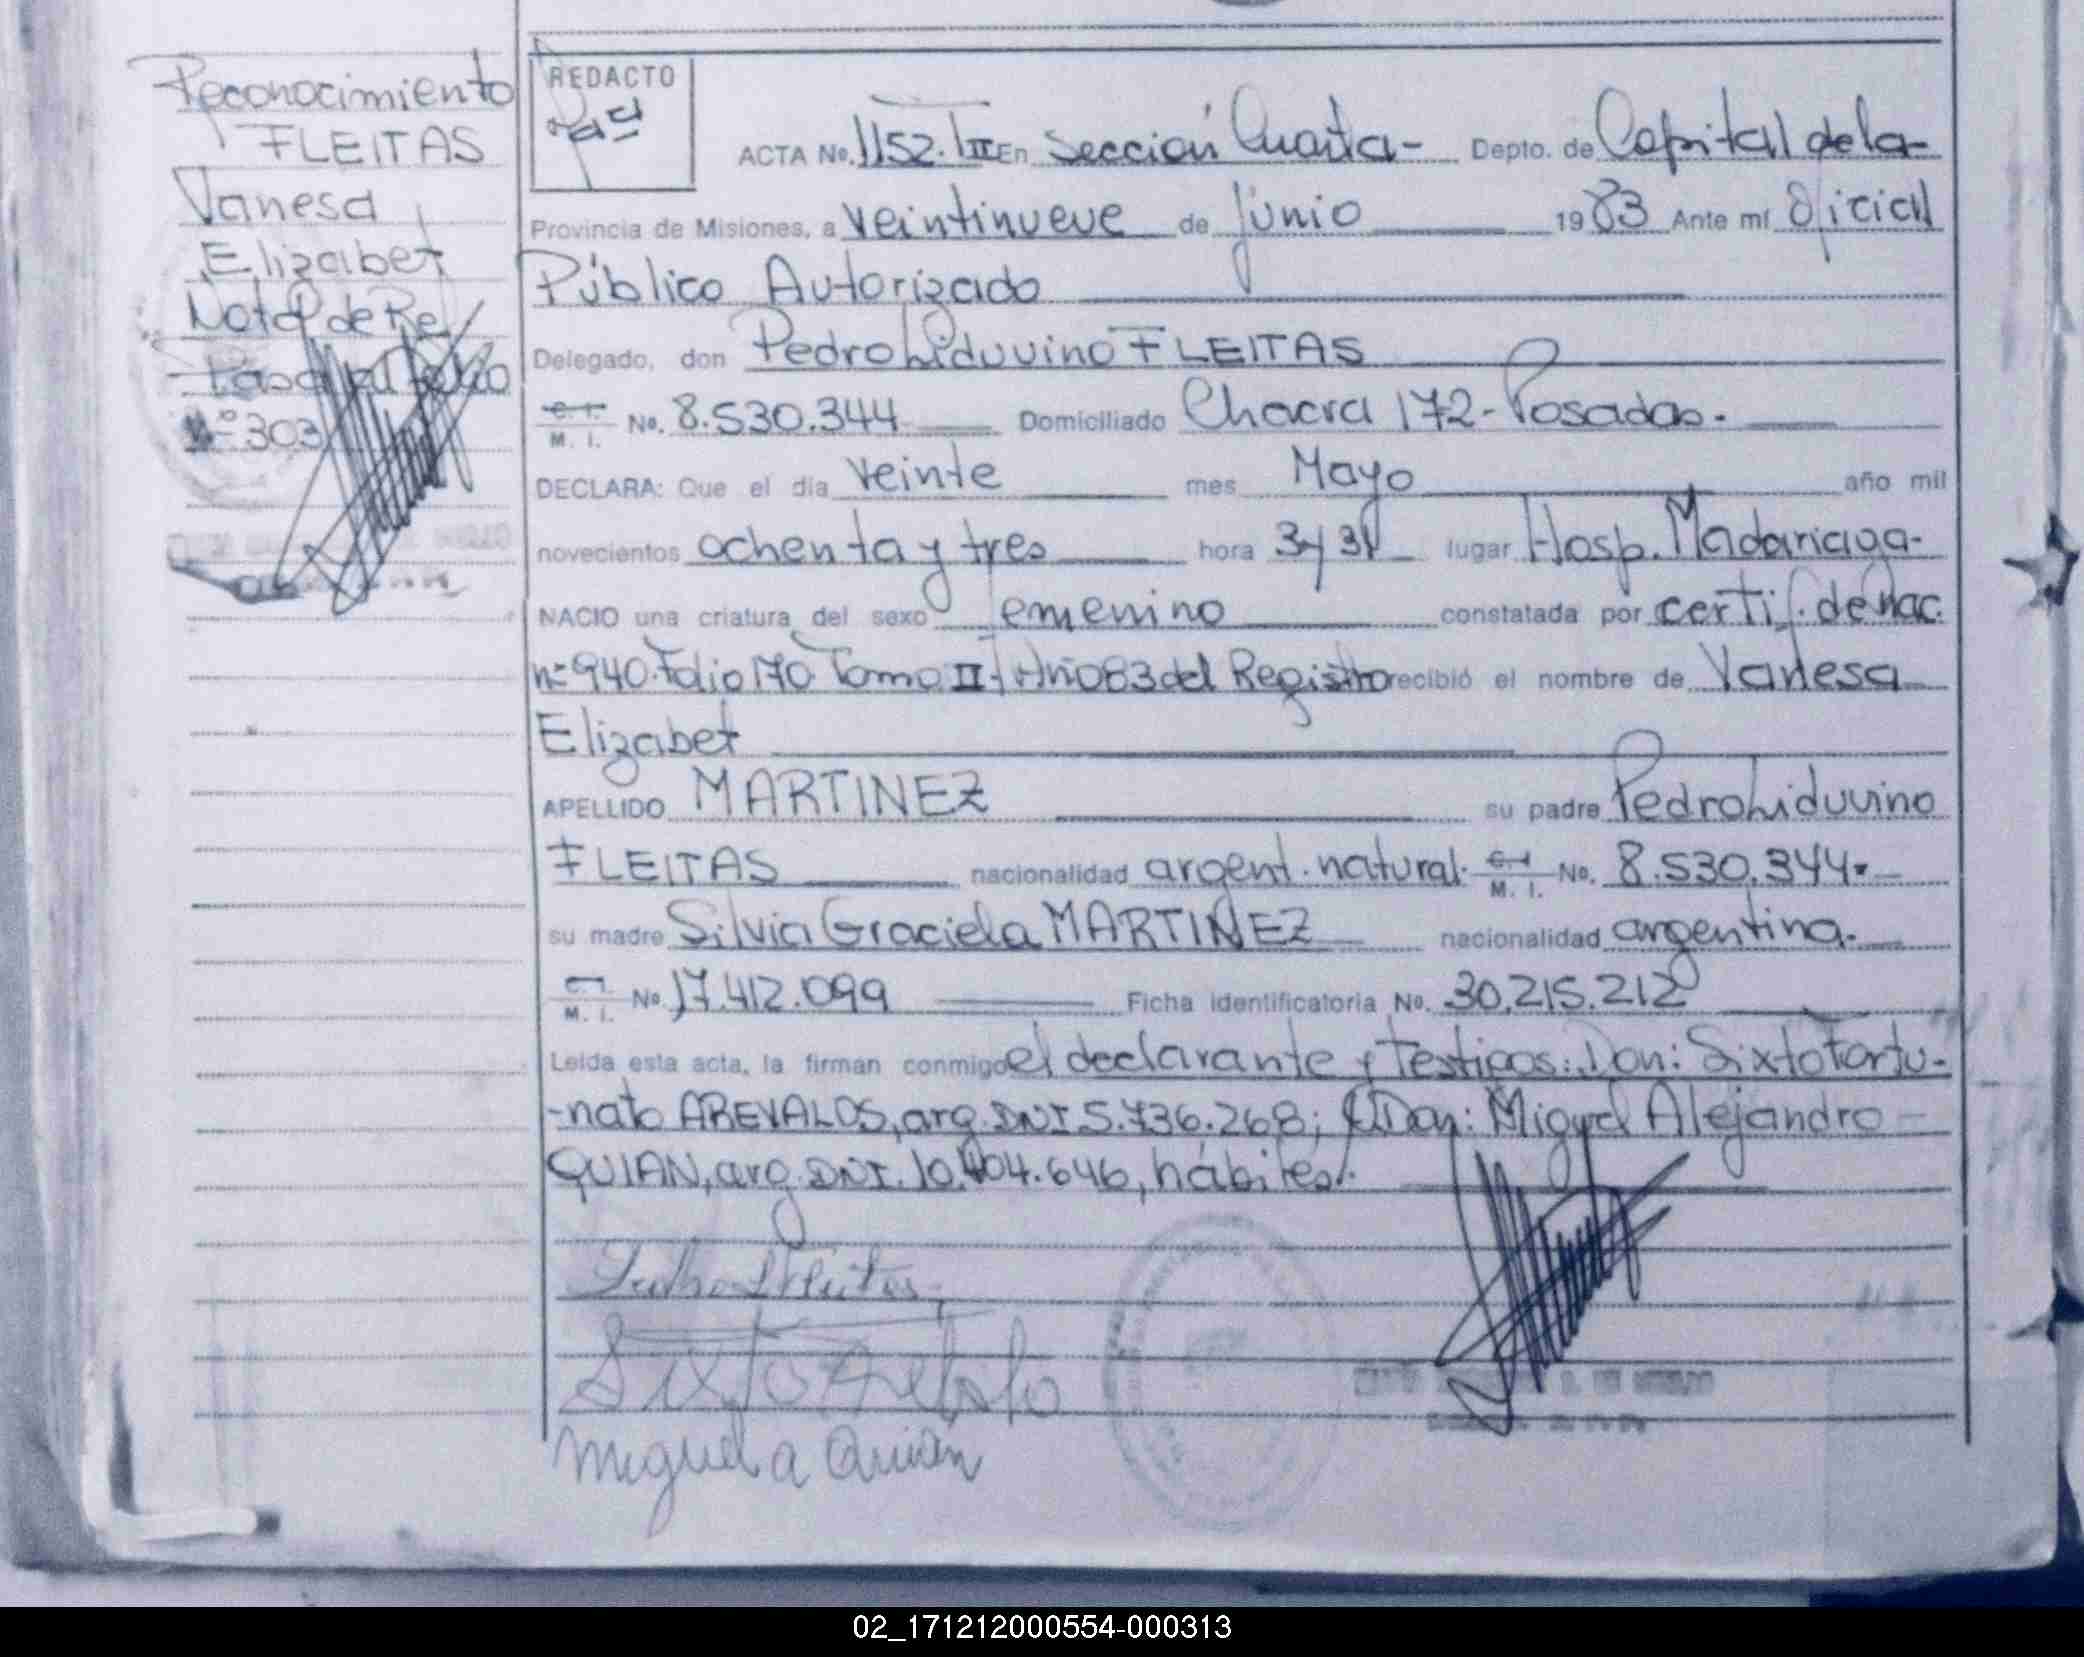 Reconocimiento
FLEITAS
Vanesa
Elizabet
Nota de Re
Nº 303
REDACTO
ACTA No. 1152. TºII En Sección Cuarta- Depto. de Capital de la-
Provincia de Misiones, a veintinueve de junio 1983 Ante mí Oficial
Público Autorizado
Delegado, don Pedro Liduvino FLEITAS
C. I. M. I. No. 8.530.344 Domiciliado Chacra 172- Posadas.
DECLARA: Que el día veinte mes Mayo año mil
novecientos ochenta y tres hora 3 y 31 lugar Hosp. Madariaga-
NACIO una criatura del sexo femenino constatada por certif. de Nac.
nº 940. Folio 170 Tomo II- Año 83 del Registro recibió el nombre de Vanesa
Elizabet
APELLIDO MARTINEZ su padre Pedro Liduvino
FLEITAS nacionalidad argent. natural. C. I. M. I. No. 8.530.344.
su madre Silvia Graciela MARTINEZ nacionalidad argentina.
C. I. M. I. No. 17.412.099 Ficha identificatoria No. 30.215.212
Leída esta acta, la firman conmigo el declarante y Testigos: Don: Sixto Fortu-
-nato AREVALOS, arg. DNI 5.736.268; Don: Miguel Alejandro-
QUIAN, arg. DNI. 10.404.646, hábiles.
Pedro L Fleitas
Sixto
Miguel a Quian
02_171212000554-000313